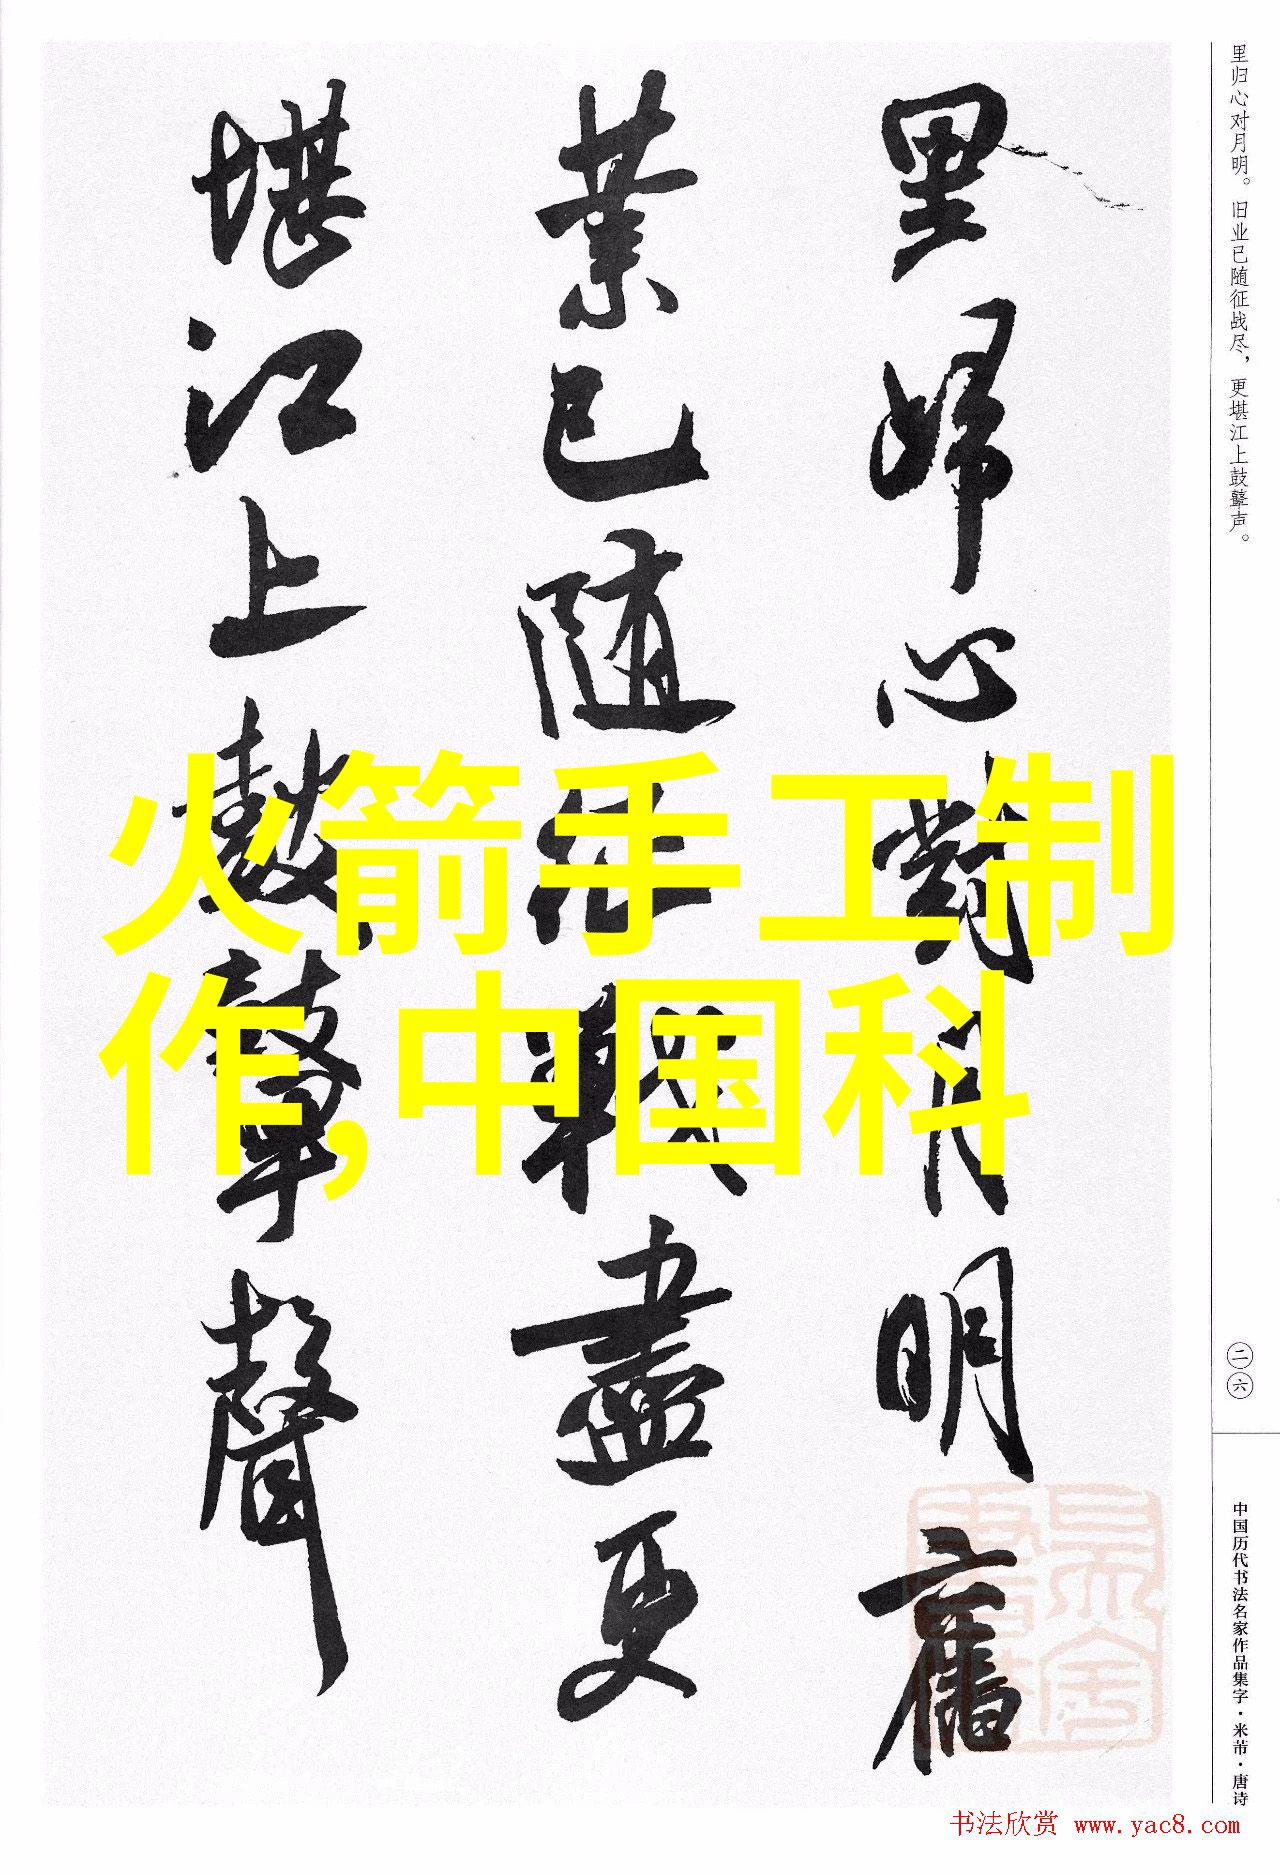 里归心对月明。旧业已随征战尽，更堪江上鼓鼙声。
里歸心對月明舊
業已隨征戰盡更
堪江上鼓鼙聲
火箭手工制
作,中国科
二六
中国历代书法名家作品集字·米芾·唐诗
书法欣赏 www.yac8.com